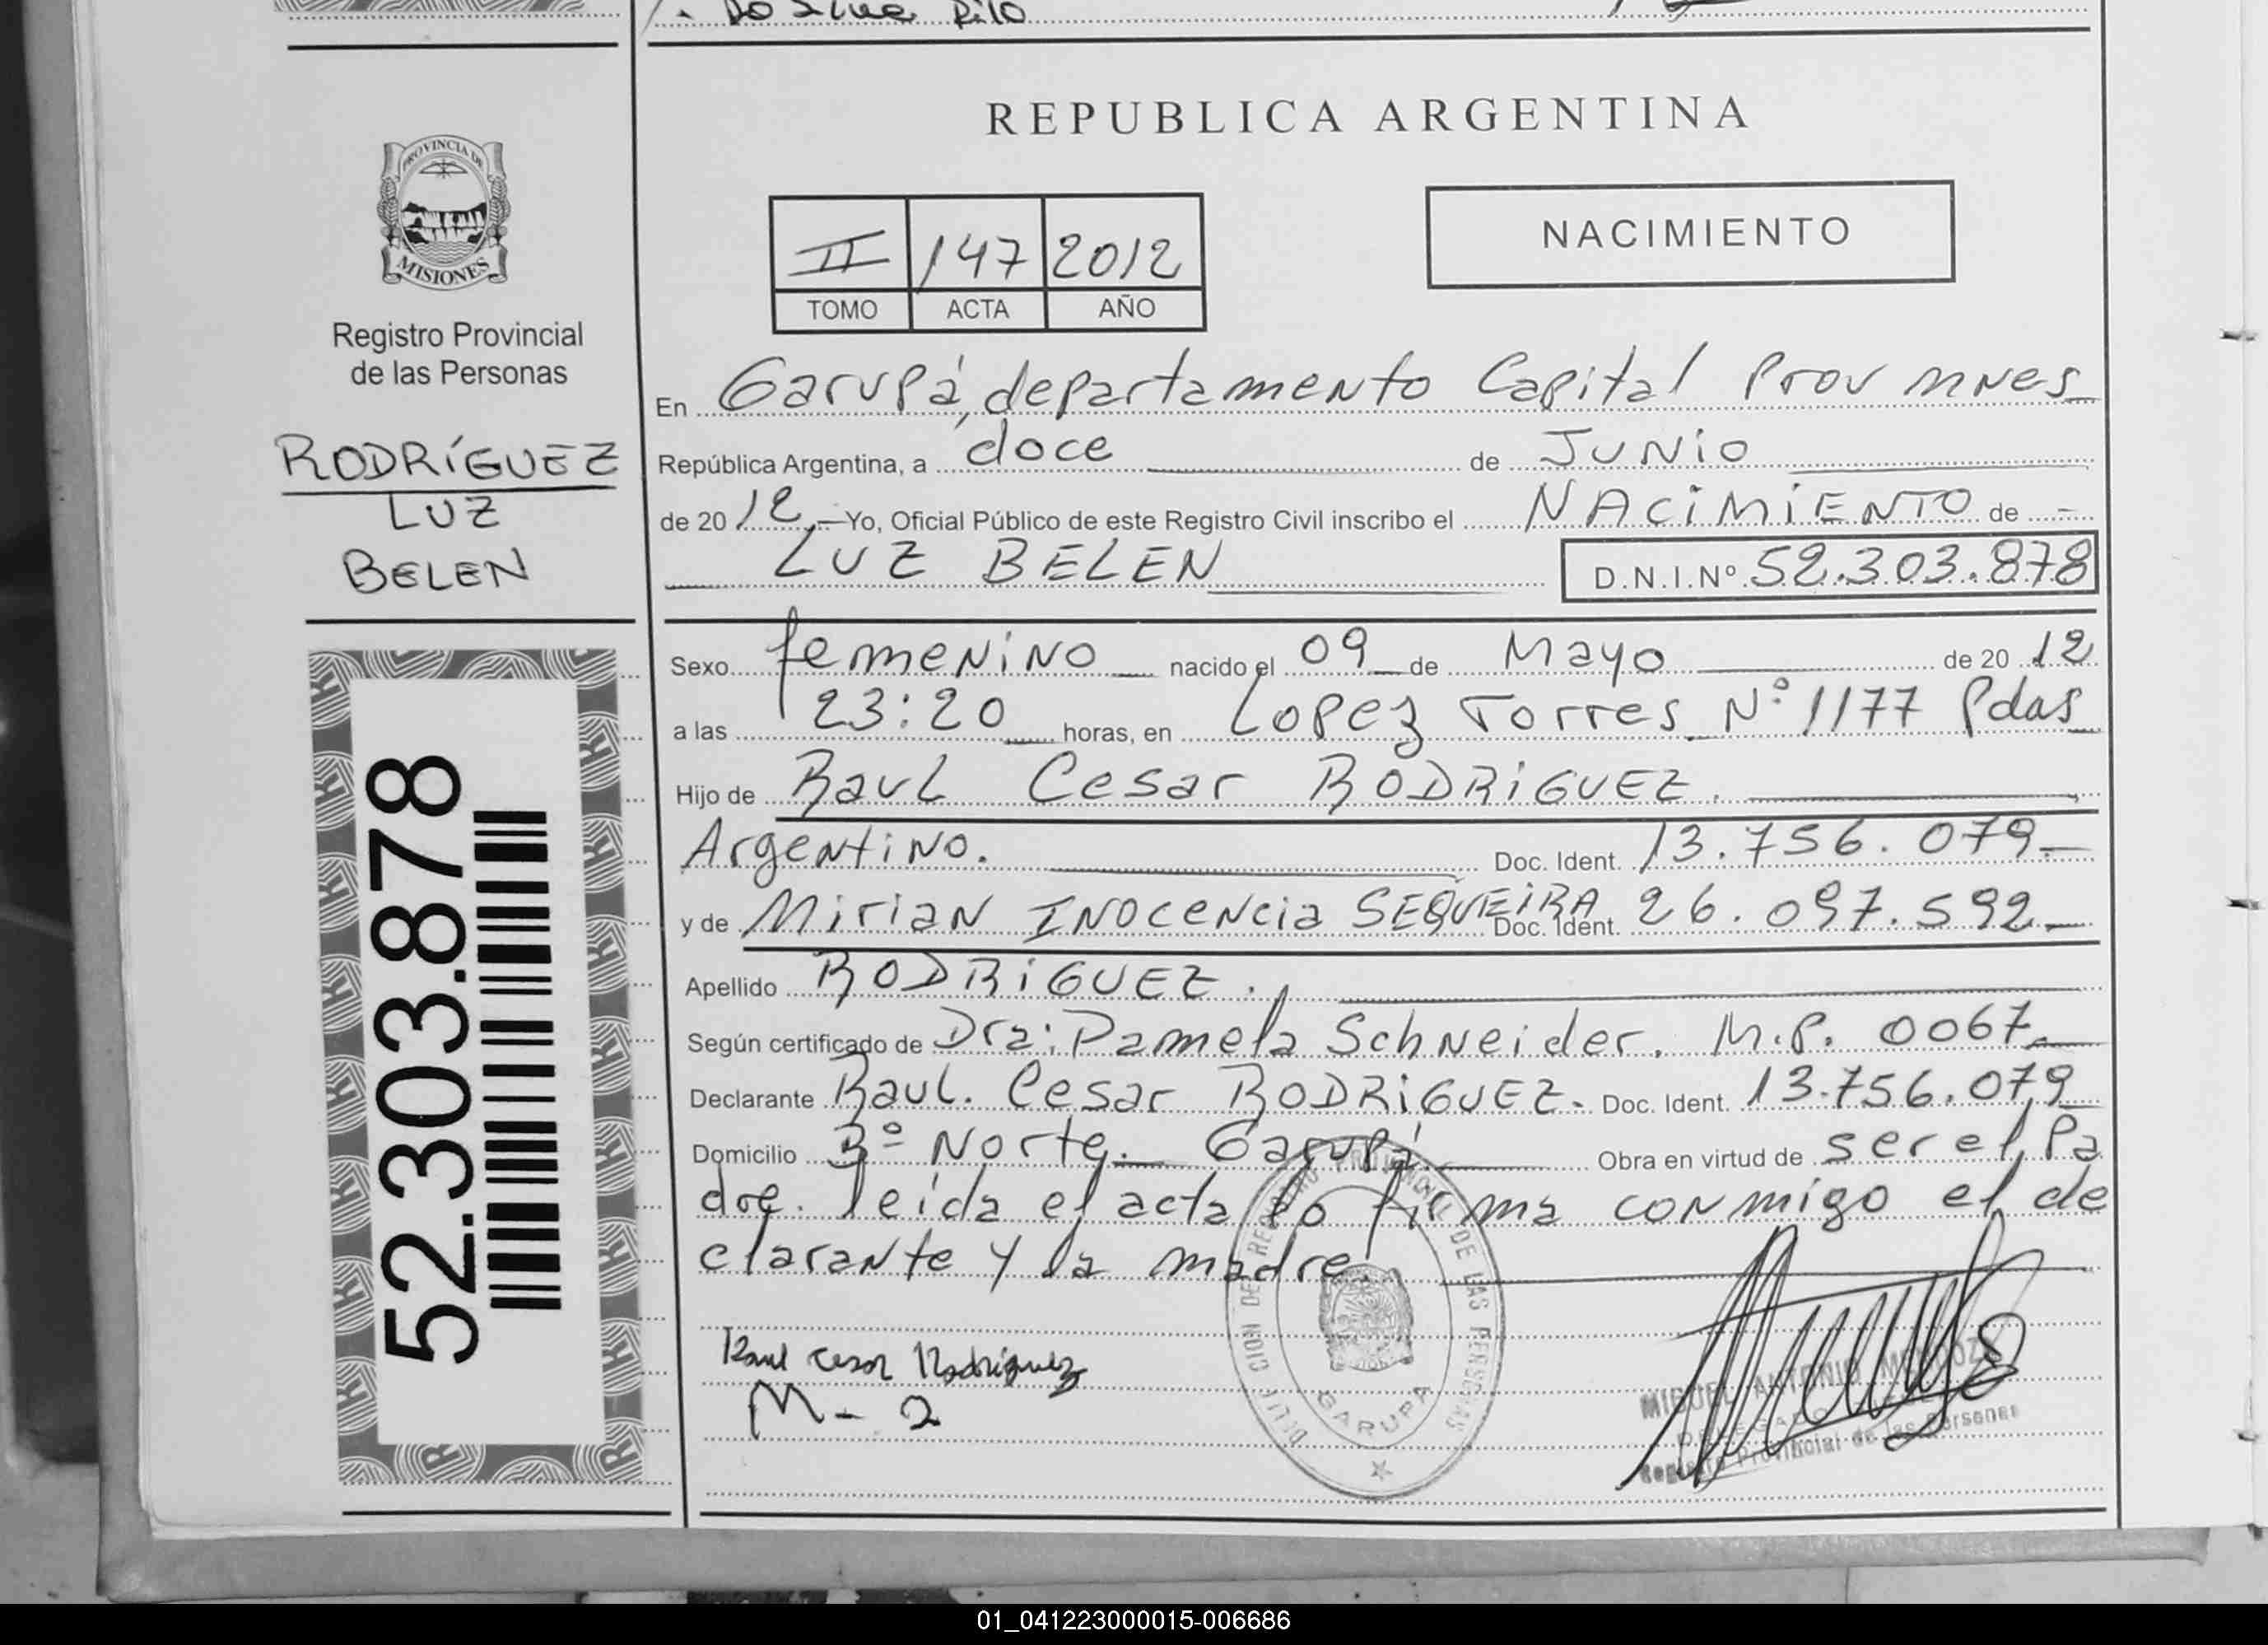 Da Silva Rilo
REPUBLICA ARGENTINA
PROVINCIA DE
MISIONES
Registro Provincial
de las Personas
RODRÍGUEZ
LUZ
BELEN
52.303.878
II 147 2012
TOMO ACTA AÑO
NACIMIENTO
En Garupá, departamento Capital Prov mnes
República Argentina, a doce de JUNIO
de 20 12 Yo, Oficial Público de este Registro Civil inscribo el NACIMIENTO de
LUZ BELEN D.N.I.Nº 52.303.878
Sexo femenino nacido el 09 de Mayo de 20 12
a las 23:20 horas, en Lopez Torres Nº 1177 Pdas
Hijo de Raul Cesar RODRIGUEZ.
Argentino. Doc. Ident. 13.756.079
y de Mirian INOCENCia SEQUEIRA Doc. Ident. 26.097.592
Apellido RODRIGUEZ.
Según certificado de Dra: Pamela Schneider. M.P. 0067
Declarante Raul. Cesar RODRIGUEZ. Doc. Ident. 13.756.079
Domicilio Bº Norte. Garupá. Obra en virtud de ser el Pa
dre. leida el acta lo firma conmigo el de
clarante y la madre.
Raul Cesar Rodriguez
M-2
DEL REGISTRO PROVINCIAL DE LAS PERSONAS
GARUPA
MIGUEL ANTONIO MENDOZA
DELEGADO
Registro Provincial de las Personas
01_041223000015-006686